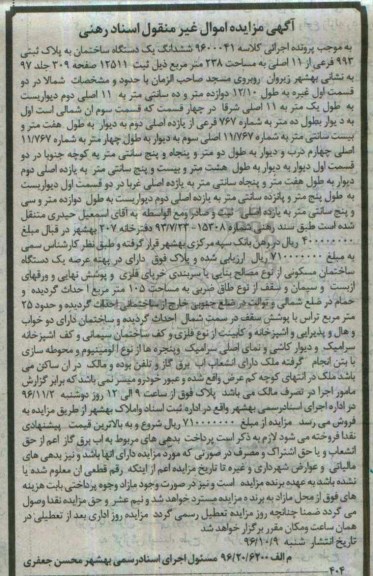 آگهی مزایده اموال غیر منقول اسناد رهنی
به موجب پرونده اجرائی کلاسه ۹۶۰۰۰۴۱ ششدانگ یک دستگاه ساختمان به پلاک ثبتی
۹۹۳ فرعی از ۱۱ اصلی به مساحت ۲۳۸ متر مربع ذیل ثبت ۱۲۵۱۱ صفحه ۳۰۹ جلد ۹۷
به نشانی بهشهر زیروان روبروی مسجد صاحب الزمان با حدود و مشخصات شمالا در دو
قسمت اول غیره به طول ۱۲/۱۰ دوازده متر و ده سانتی متر به ۱۱ اصلی دوم دیواریست
به طول یک متر به ۱۱ اصلی شرقا در چهار قسمت که قسمت سوم ان شمالی است اول
به دیوار بطول ده متر به شماره ۷۶۷ فرعی از یازده اصلی دوم به دیوار به طول هفت متر و
بیست سانتی متر به شماره ۱۱/۷۶۷ اصلی سوم به دیوار به طول چهار متر به شماره ۱۱/۷۶۷
اصلی چهارم درب و دیوار به طول دو متر و پنجاه و پنج سانتی متر به کوچه جنوبا در دو
قسمت اول دیوار به دیوار به طول هشت متر و بیست و پنج سانتی متر به یازده اصلی دوم
دیوار به طول هفت متر و پنجاه سانتی متر به یازده اصلی غربا در دو قسمت اول دیواریست
به طول پنج متر و پانزده سانتی متر به یازده اصلی دوم دیواریست به طول دوازده متر و سی
و پنج سانتی متر به یازده اصلی ثبت و صادر ومع الواسطه به آقای اسمعیل حیدری منتقل
شده است طبق سند رهنی شماره ۱۵۳۰۸-۹۳/۷/۲۳ دفترخانه ۲۰۷ بهشهر در قبال مبلغ
۴۰۰۰۰۰۰۰۰ ریال در رهن بانک سپه مرکزی بهشهر قرار گرفته و طبق نظر کارشناس سمی
به مبلغ ۷۱۰۰۰۰۰۰۰ ریال ارزیابی شده و پلاک فوق دارای در پهنه عرصه یک دستگاه
ساختمان مسکونی از نوع مصالح بنایی با سربندی خرپای فلزی و پوشش نهایی و ورقهای
ازبست و سیمان و سقف از نوع طاق ضربی به مساحت ۱۰۵ متر مربع احداث گردیده و
حمام در ضلع شمالی و توالت در ضلع جنوبی خارج از ساختمانی احداث گردیده و حدود ۲۵
متر مربع تراس با پوشش سقف در سمت شمال احداث گردیده و ساختمان دارای دو خواب
و هال و پذیرایی و اشپزخانه و کابینت از نوع فلزی و کف ساختمان سیمانی و کف اشپزخانه
سرامیک و دیوار کاشی و نمای اصلی سرامیک وپنجره ها از نوع الومینیوم و محوطه سازی
با بتن انجام گرفته ملک دارای انشعاب اب برق گاز و تلفن بوده و مالک در ان ساکن می
باشد ملک در انتهای کوچه کم عرض واقع شده و عبور خودرو میسر نمی باشد که برابر گزارش
مامور اجرا در تصرف مالک می باشد پلاک فوق از ساعت ۹ الی ۱۲ روز دوشنبه ۹۶/۱۱/۲
در اداره اجرای اسنادرسمی بهشهر واقع در اداره ثبت اسناد واملاک بهشهر از طریق مزایده به
فروش می رسد مزایده از مبلغ ۷۱۰۰۰۰۰۰۰ ریال شروع و به بالاترین قیمت پیشنهادی
نقدا فروخته می شود لازم به ذکر است پرداخت بدهی های مربوط به اب برق گاز اعم از حق
انشعاب و یا حق اشتراک و مصرف در صورتی که مورد مزایده دارای انها باشد و نیز بدهی های
مالیاتی و عوارض شهرداری و غیره تا تاریخ مزایده اعم از اینکه رقم قطعی ان معلوم شده یا
نشده باشد به عهده برنده مزایده است و نیز در صورت وجود مازاد وجوه پرداختی بابت هزینه
های فوق از محل مازاد به برنده مزایده مسترد خواهد شد و نیم عشر و حق مزایده نقدا وصول
می گردد ضمنا چنانچه روز مزایده تعطیل رسمی گردد مزایده روز اداری بعد از تعطیلی در
همان ساعت ومکان مقرر برگزار خواهد شد
تاریخ انتشار: شنبه ۹۶/۱۰/۹
م الف ۹۶/۲۰/۶۲۰۰ مسئول اجرای اسنادرسمی بهشهر محسن جعفری
۴۰۴